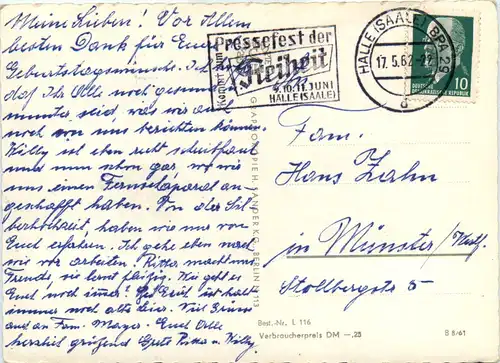 Meine Lieben! Vor Allem
besten Dank für Eure
Geburtstagswünsche. Ich
daß Ihr Alle noch gesund u.
munter seid, was wir auch
noch von uns berichten können.
Willy ist eben recht schreibfaul
und nun schon gar, wo wir
uns einen Fernsehaparat an-
geschafft haben. Von der Sil-
berhochzeit, haben wir nur von
Euch erfahren. Ich gehe eben nach
wie vor arbeiten. Petra macht uns
Freude, sie lernt fleißig. Wie geht es
Euch noch immer? Bei Euch ist halt
immer noch alles beim Viel Grüsse
auch an Fam. Mayer. Euch Alle
herzlich grüßend Grete Petra u. Willy
Kommt zum
Pressefest der
Freiheit
9.10.11. JUNI
HALLE (SAALE)
HALLE (SAALE) BPA 29
17.5.62-22
d
10
DEUTSCHE
DEMOKRATISCHE REPUBLIK
GRAPHOKOPIE H. SANDER K.G., BERLIN
113
Fam.
Hans Zahn
in Münster/Westf.
Stollbergstr. 5
Best.-Nr. L 116
Verbraucherpreis DM —,25
B 8/61